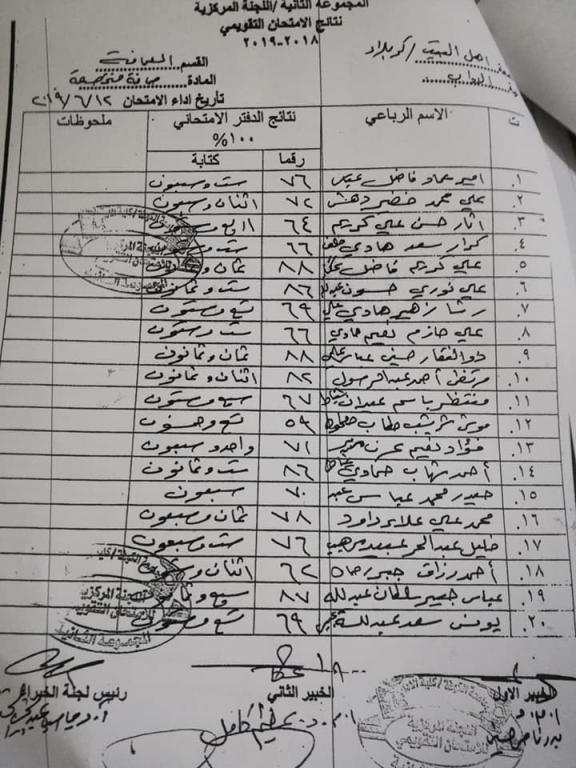 المجموعة الثانية /اللجنة المركزية
نتائج الامتحان التقويمي
٢٠١٨-٢٠١٩
اهل البيت / كربلاء
القسم الصحافة
المادة صحافة متخصصة
تاريخ اداء الامتحان ٢٠١٩/٦/١٢
ت الاسم الرباعي نتائج الدفتر الامتحاني ١٠٠% ملحوظات
رقما كتابة
١. امير عماد فاضل عباس ٧٦ ست وسبعون
٢. علي محمد خضير دهش ٧٢ اثنان وسبعون
٣. اثار حسن علي كريم ٦٤ اربع وستون
٤. كرار سعد هادي ٦٦ ست وستون
٥. علي كريم فاضل ٨٨ ثمان وثمانون
٦. علي نوري حسون ٨٦ ست وثمانون
٧. رشا زاهير هادي علي ٦٩ تسع وستون
٨. علي حازم نعيم هادي ٦٦ ست وستون
٩. ذو الفقار حسين عباس علي ٨٨ ثمان وثمانون
١٠. مرتضى أحمد عبد الرسول ٨٢ اثنان وثمانون
١١. منتظر باسم عبدان ٦٧ سبع وستون
١٢. ٥٩ تسع وخمسون
١٣. فؤاد نعيم ٧١ واحد وسبعون
١٤. أحمد شهاب حمادي ٨٦ ست وثمانون
١٥. حيدر محمد عباس عبد ٧٠ سبعون
١٦. محمد علي علاء داود ٧٨ ثمان وسبعون
١٧. خليل عبد الحر ٧٦ ست وسبعون
١٨. أحمد رزاق جبر ٦٢ اثنان وستون
١٩. عباس سلطان عبد الله ٨٧ سبع وثمانون
٢٠. يونس سعد عبد الله ٦٩ تسع وستون
الخبير الاول الخبير الثاني رئيس لجنة الخبراء
أ.م.د. كامل
اللجنة المركزية
للامتحان التقويمي
المجموعة الثانية